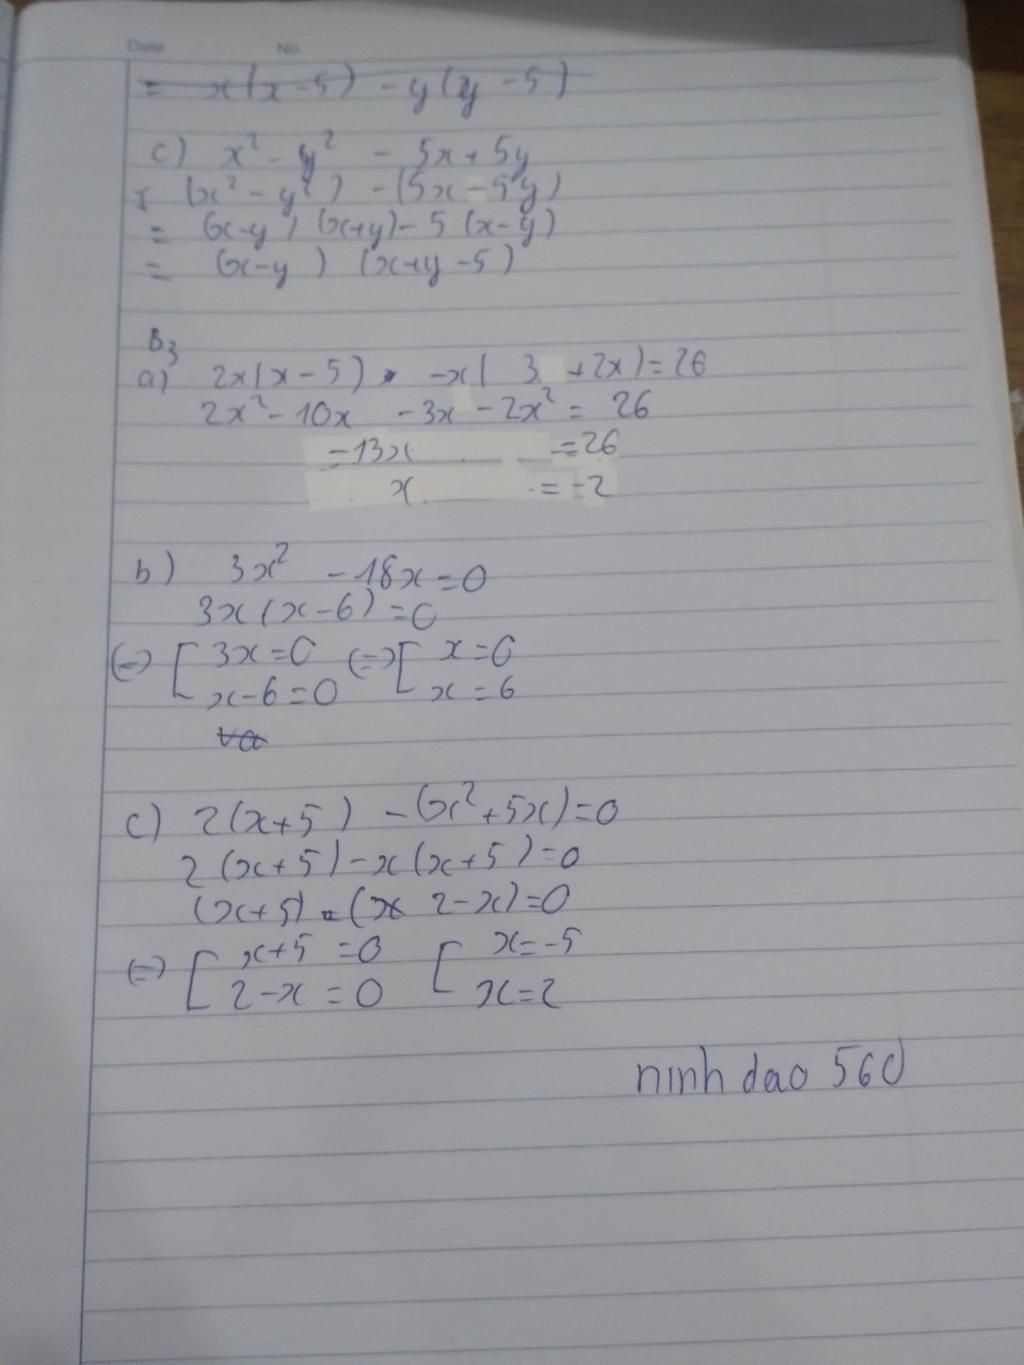 Date No.
= x(x-5) - y(y-5)
c) x² - y² - 5x + 5y
= (x² - y²) - (5x - 5y)
= (x-y) (x+y) - 5 (x-y)
= (x-y) (x+y-5)
B3
a) 2x(x-5) -x( 3 +2x) = 26
2x² - 10x - 3x - 2x² = 26
-13x = 26
x = -2
b) 3x² - 18x = 0
3x(x-6) = 0
(=) [ 3x=0 (=) [ x=0
x-6=0 x=6
c) 2(x+5) - (x²+5x)=0
2(x+5)-x(x+5)=0
(x+5) (2-x)=0
(=) [ x+5 = 0 [ x=-5
2-x = 0 x=2
ninh dao 560